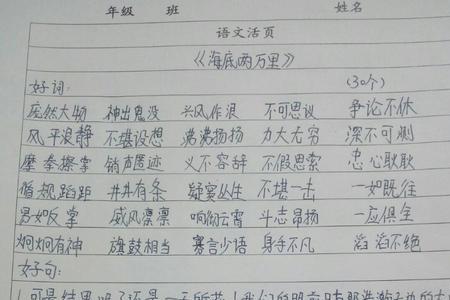 年级 班 姓名
语文活页
《海底两万里》
好词: (30个)
庞然大物 神出鬼没 兴风作浪 不可思议 争论不休
风平浪静 不堪设想 沸沸扬扬 力大无穷 深不可测
摩拳擦掌 销声匿迹 义不容辞 不假思索 忠心耿耿
循规蹈距 井井有条 疑窦丛生 不堪一击 一如既往
男女反掌 威风凛凛 响彻云霄 斗志昂扬 一应俱全
炯炯有神 旗鼓相当 寡言少语 身手不凡 滔滔不绝
好句: